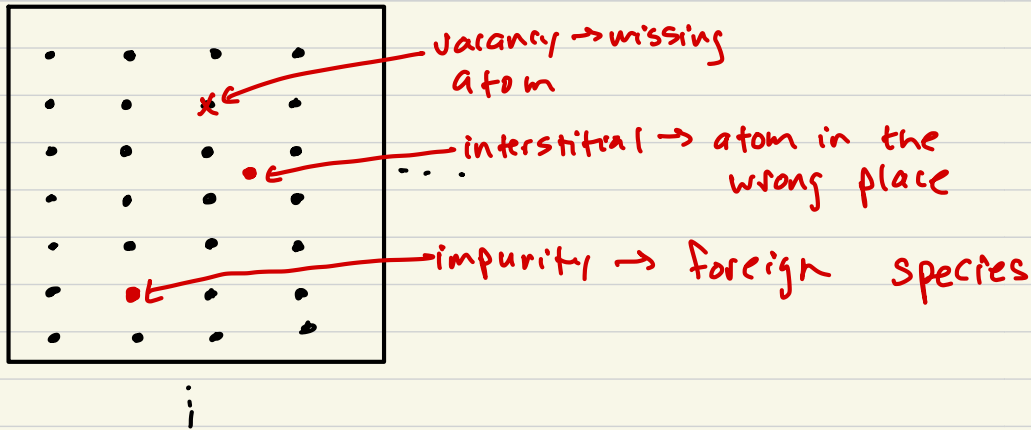 vacancy → missing
atom
interstitial → atom in the
wrong place
impurity → foreign species